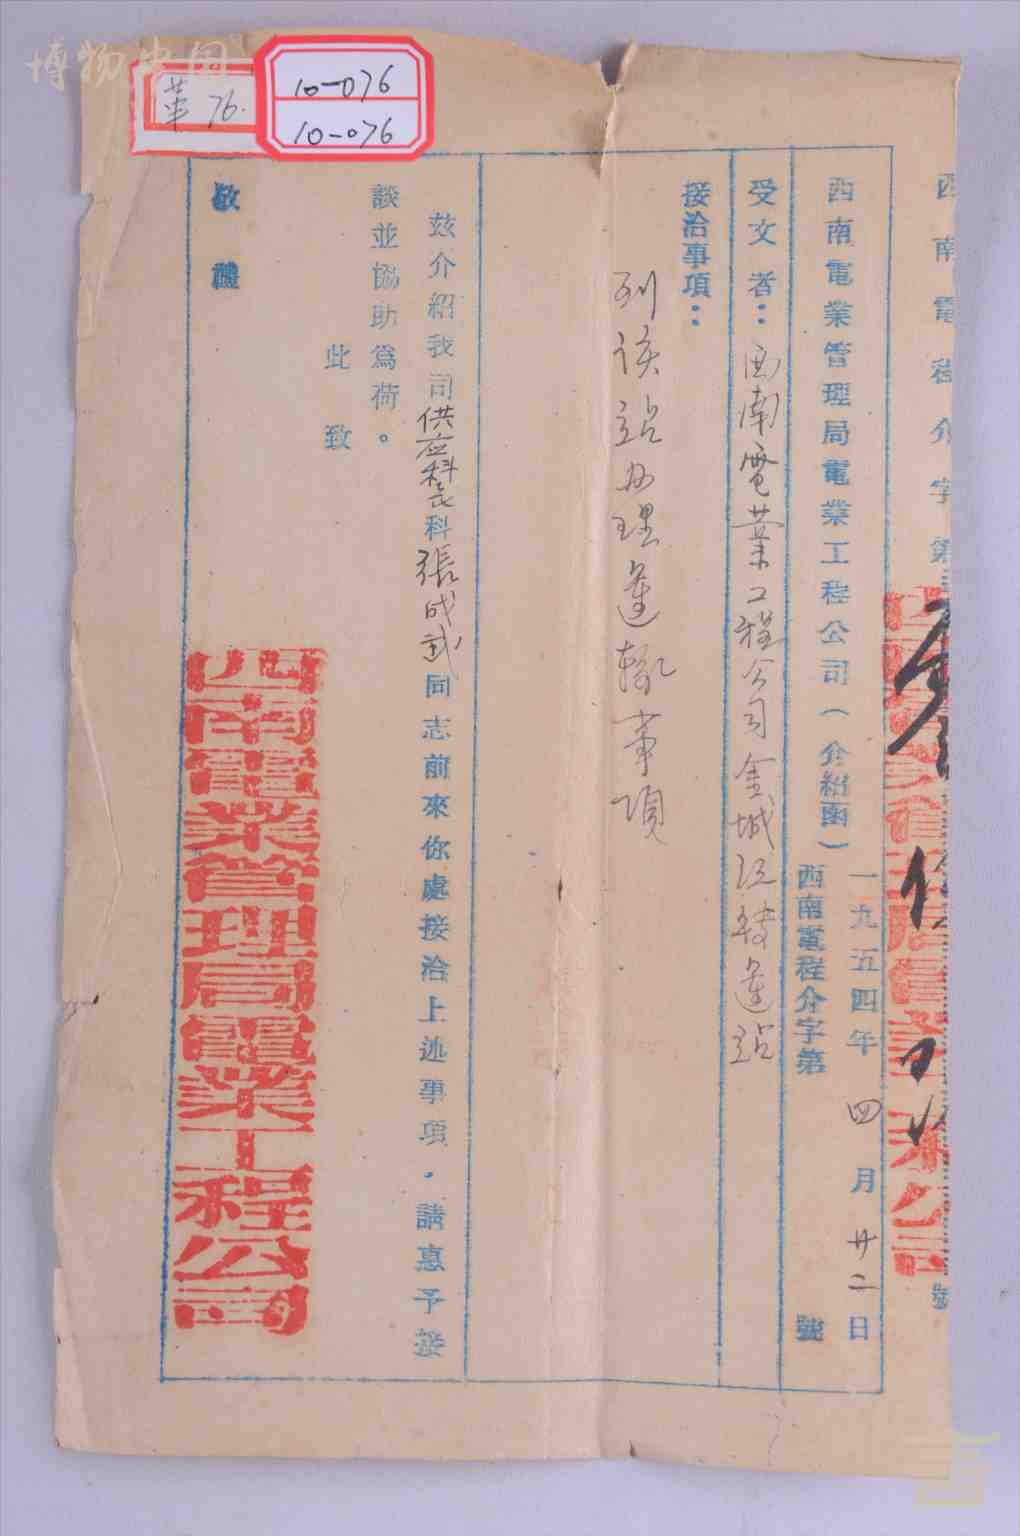 博物中国
革 76.
10-076
10-076
西南電程介字第
號
西南電業管理局電業工程公司（介紹函）
一九五四年四月廿二日
西南電程介字第 號
受文者：西南電業工程公司金城江轉運站
接洽事項：
到该站办理運輸事項
茲介紹我司供应科科張成武同志前來你處接洽上述事項，請惠予接
談並協助為荷。
此致
敬禮
西南電業管理局電業工程公司